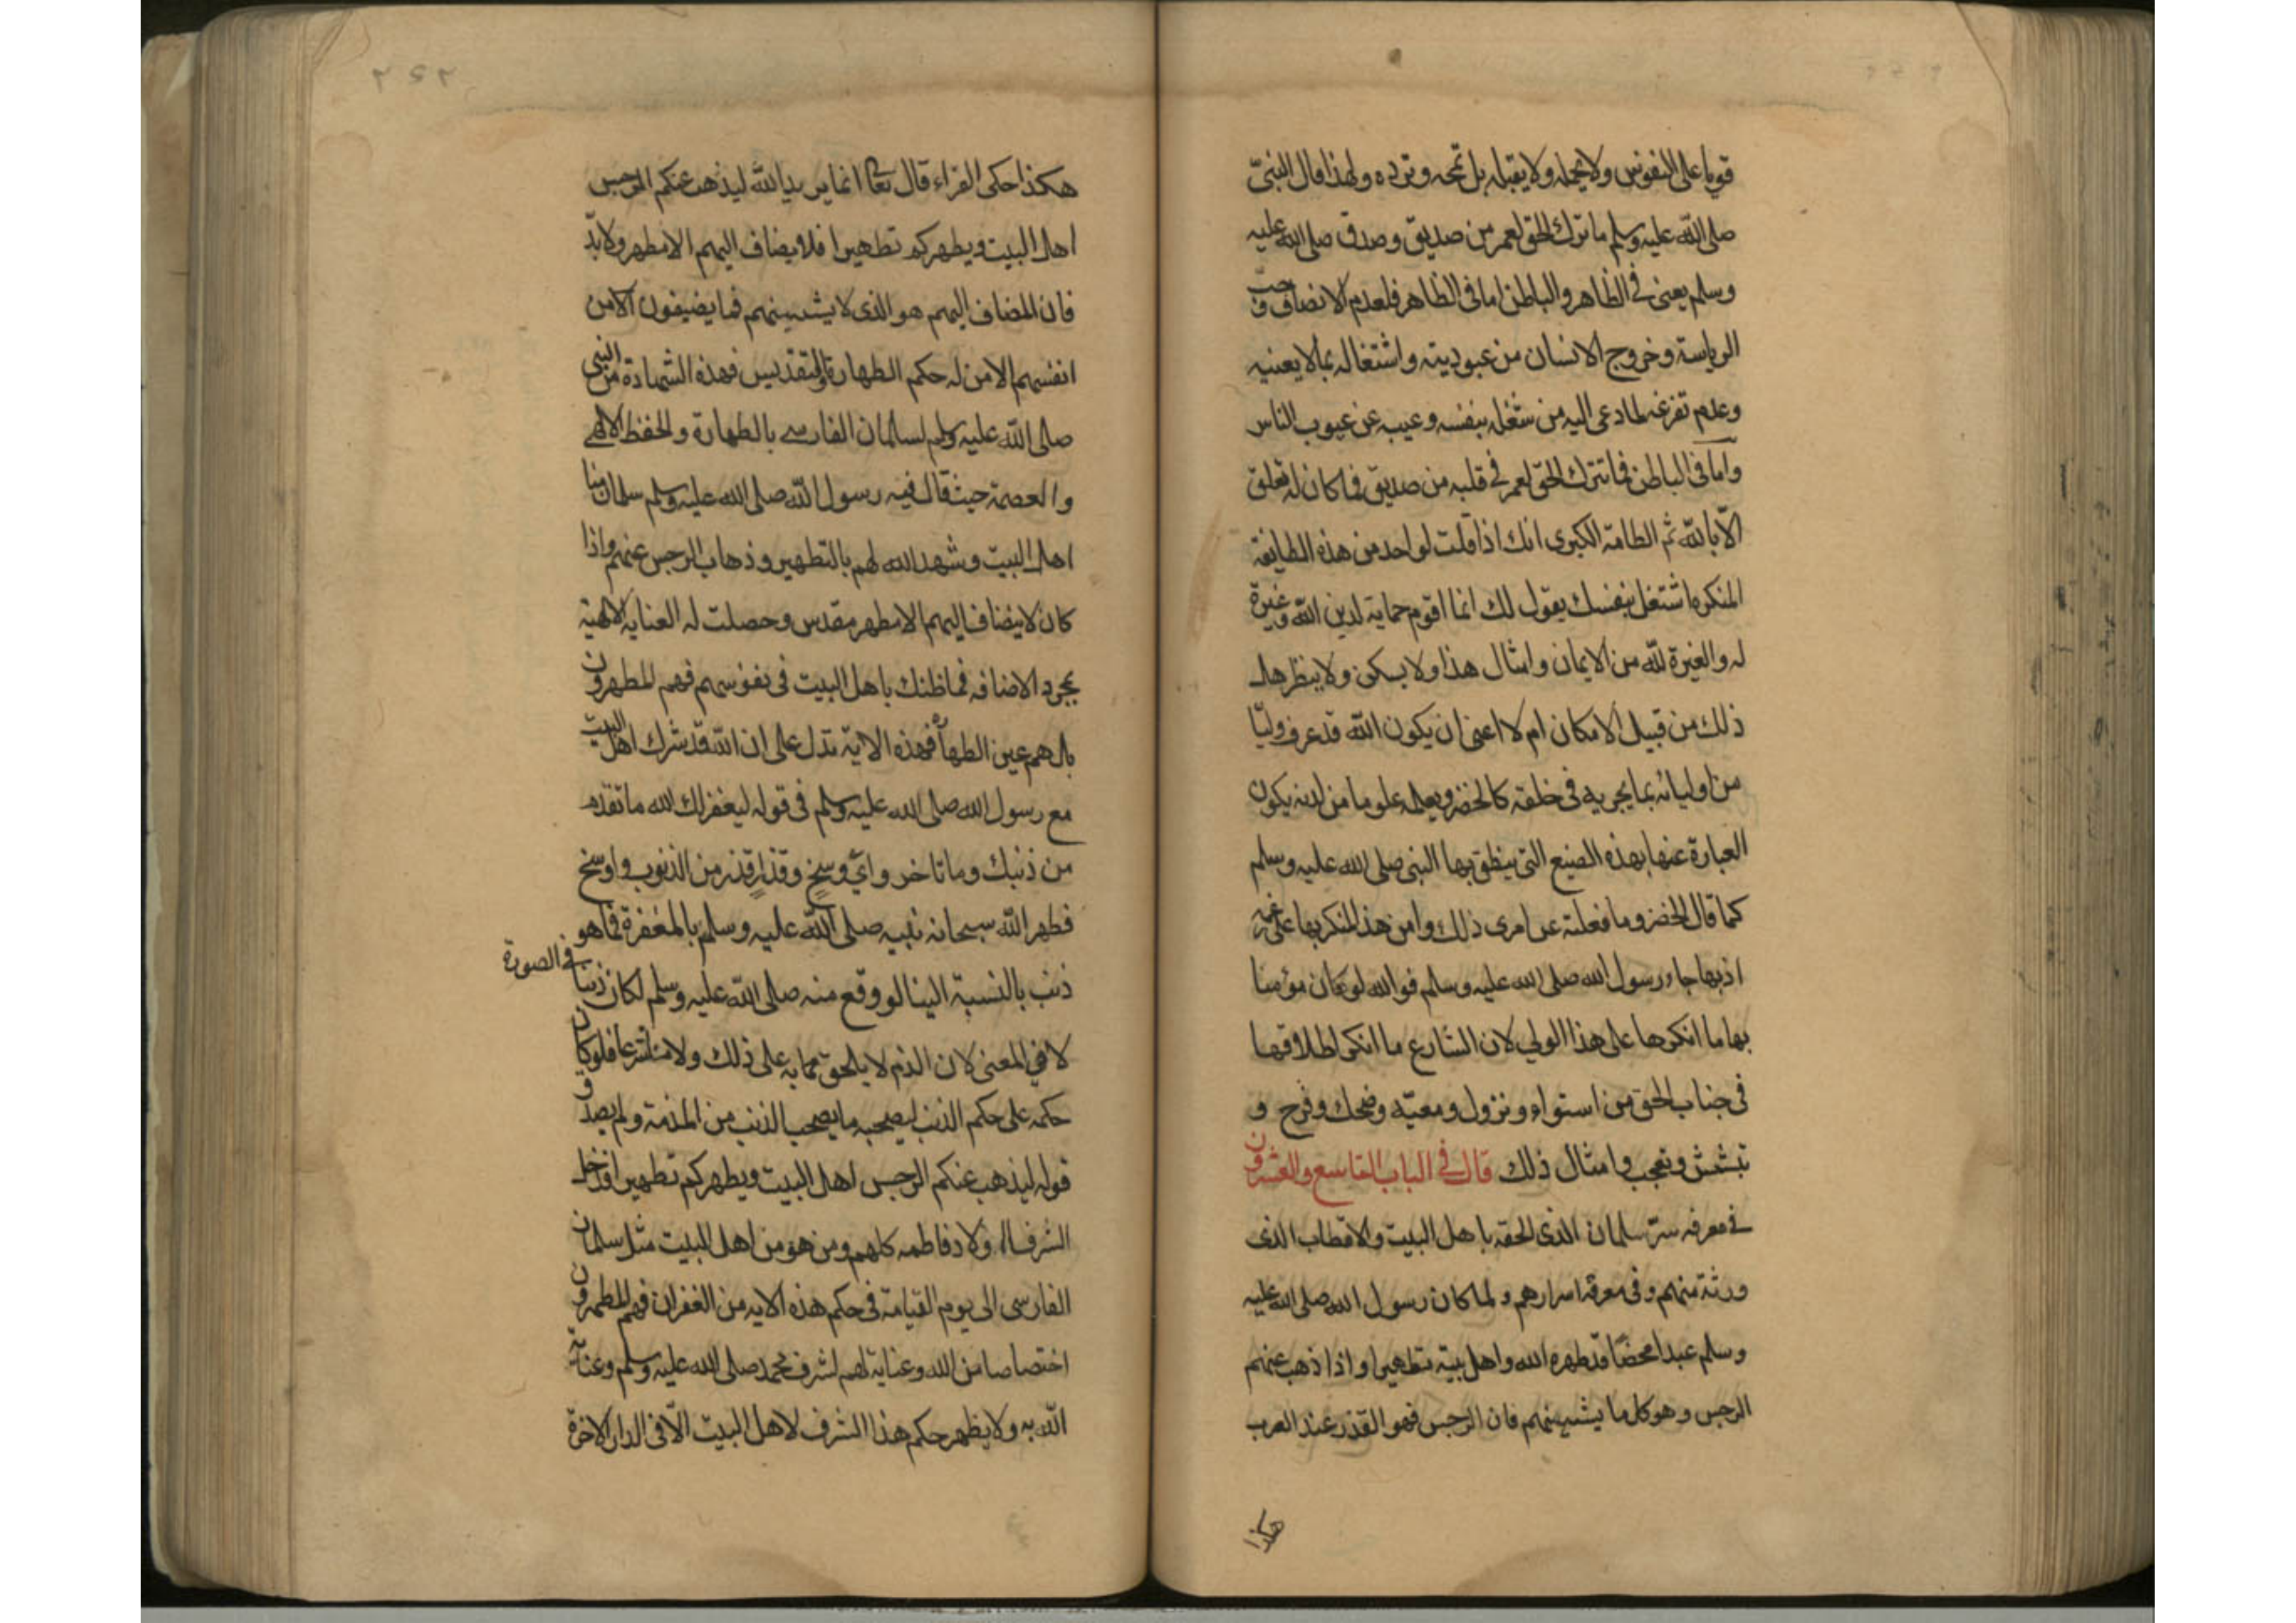 قويا على النفوس ولا يحمله ولا يقبله بل تمجه وترده ولهذا قال النبي
صلى الله عليه وسلم ما ترك الحق لعمر من صديق وصدق صلى الله عليه
وسلم يعني في الظاهر والباطن اما في الظاهر فلعدم الانصاف وحب
الرياسة وخروج الانسان من عبوديته واشتغاله بما لا يعنيه
وعدم تفرغه لما دعى اليه من شغله بنفسه وعيبه عن عيوب الناس
واما في الباطن فما تترك الحق لعمر في قلبه من صديق فما كان له تعلق
الا بالله ثم الطامة الكبرى انك اذا قلت لواحد من هذه الطايفة
المنكرة اشتغل بنفسك يقول لك انما اقوم حماية لدين الله وغيرة
له والغيرة لله من الايمان وامثال هذا ولا يسكن ولا ينظر هل
ذلك من قبيل الامكان ام لا اعنى ان يكون الله قد عرف وليا
من اوليائه بما يجريه في خلقه كالخضر ويعلمه علوما من لدنه يكون
العبارة عنها بهذه الصيغ التي ينطق بها النبي صلى الله عليه وسلم
كما قال الخضر وما فعلته عن امرى ذلك وامن هذا المنكر بها على
اذ بها جاء رسول الله صلى الله عليه وسلم فوالله لو كان مؤمنا
بها ما انكرها على هذا الولي لان الشارع ما انكر اطلاقها
في جناب الحق من استواء ونزول ومعية وضحك وفرح و
تبشش وتعجب وامثال ذلك قال في الباب التاسع والعشرون
في معرفه سر سلمان الذى الحقه باهل البيت والاقطاب الذى
ورثه منهم وفي معرفة اسرارهم ولما كان رسول الله صلى الله عليه
وسلم عبدا محضا قد طهره الله واهل بيته تطهيرا واذا ذهب عنهم
الرجس وهو كل ما يشينهم فان الرجس فهو القذر عند العرب
هكذا
هكذا حكى الفراء قال تعا انما يريد الله ليذهب عنكم الرجس
اهل البيت ويطهركم تطهيرا فلا يضاف اليهم الا مطهر ولا بد
فان المضاف اليهم هو الذى لا يشينهم فما يضيفون الا من
انفسهم الا من له حكم الطهارة والتقديس فهذه الشهادة من النبي
صلى الله عليه وسلم لسلمان الفارسي بالطهارة والحفظ الالهي
والعصمة حيث قال فيه رسول الله صلى الله عليه وسلم سلمان منا
اهل البيت وشهد الله لهم بالتطهير وذهاب الرجس عنهم واذا
كان لا يضاف اليهم الا مطهر مقدس وحصلت له العناية الالهية
بمجرد الاضافه فما ظنك باهل البيت في نفوسهم فهم المطهرون
بل هم عين الطهاة فهذه الاية تدل على ان الله قد شرك اهل البيت
مع رسول الله صلى الله عليه وسلم في قوله ليغفر لك الله ما تقدم
من ذنبك وما تاخر واي وسخ وقذر اقذر من الذنوب واوسخ
فطهر الله سبحانه نبيه صلى الله عليه وسلم بالمغفرة فما هو
ذنب بالنسبة الينا لو وقع منه صلى الله عليه وسلم لكان ذنبا في الصورة
لا في المعنى لان الذم لا يلحق به على ذلك ولا منا شرعا فلو كان
حكمه على حكم الذنب ليصحبه ما يصحب الذنب من المذمة ولم يصدق
قوله ليذهب عنكم الرجس اهل البيت ويطهركم تطهيرا فدخل
الشرفا اولاد فاطمه كلهم ومن هو من اهل البيت مثل سلمان
الفارسى الى يوم القيامة في حكم هذه الاية من الغفران فهم المطهرون
اختصاصا من الله وعناية لهم لشرف محمد صلى الله عليه وسلم وعناية
الله به ولا يظهر حكم هذا الشرف لاهل البيت الا في الدار الاخرة